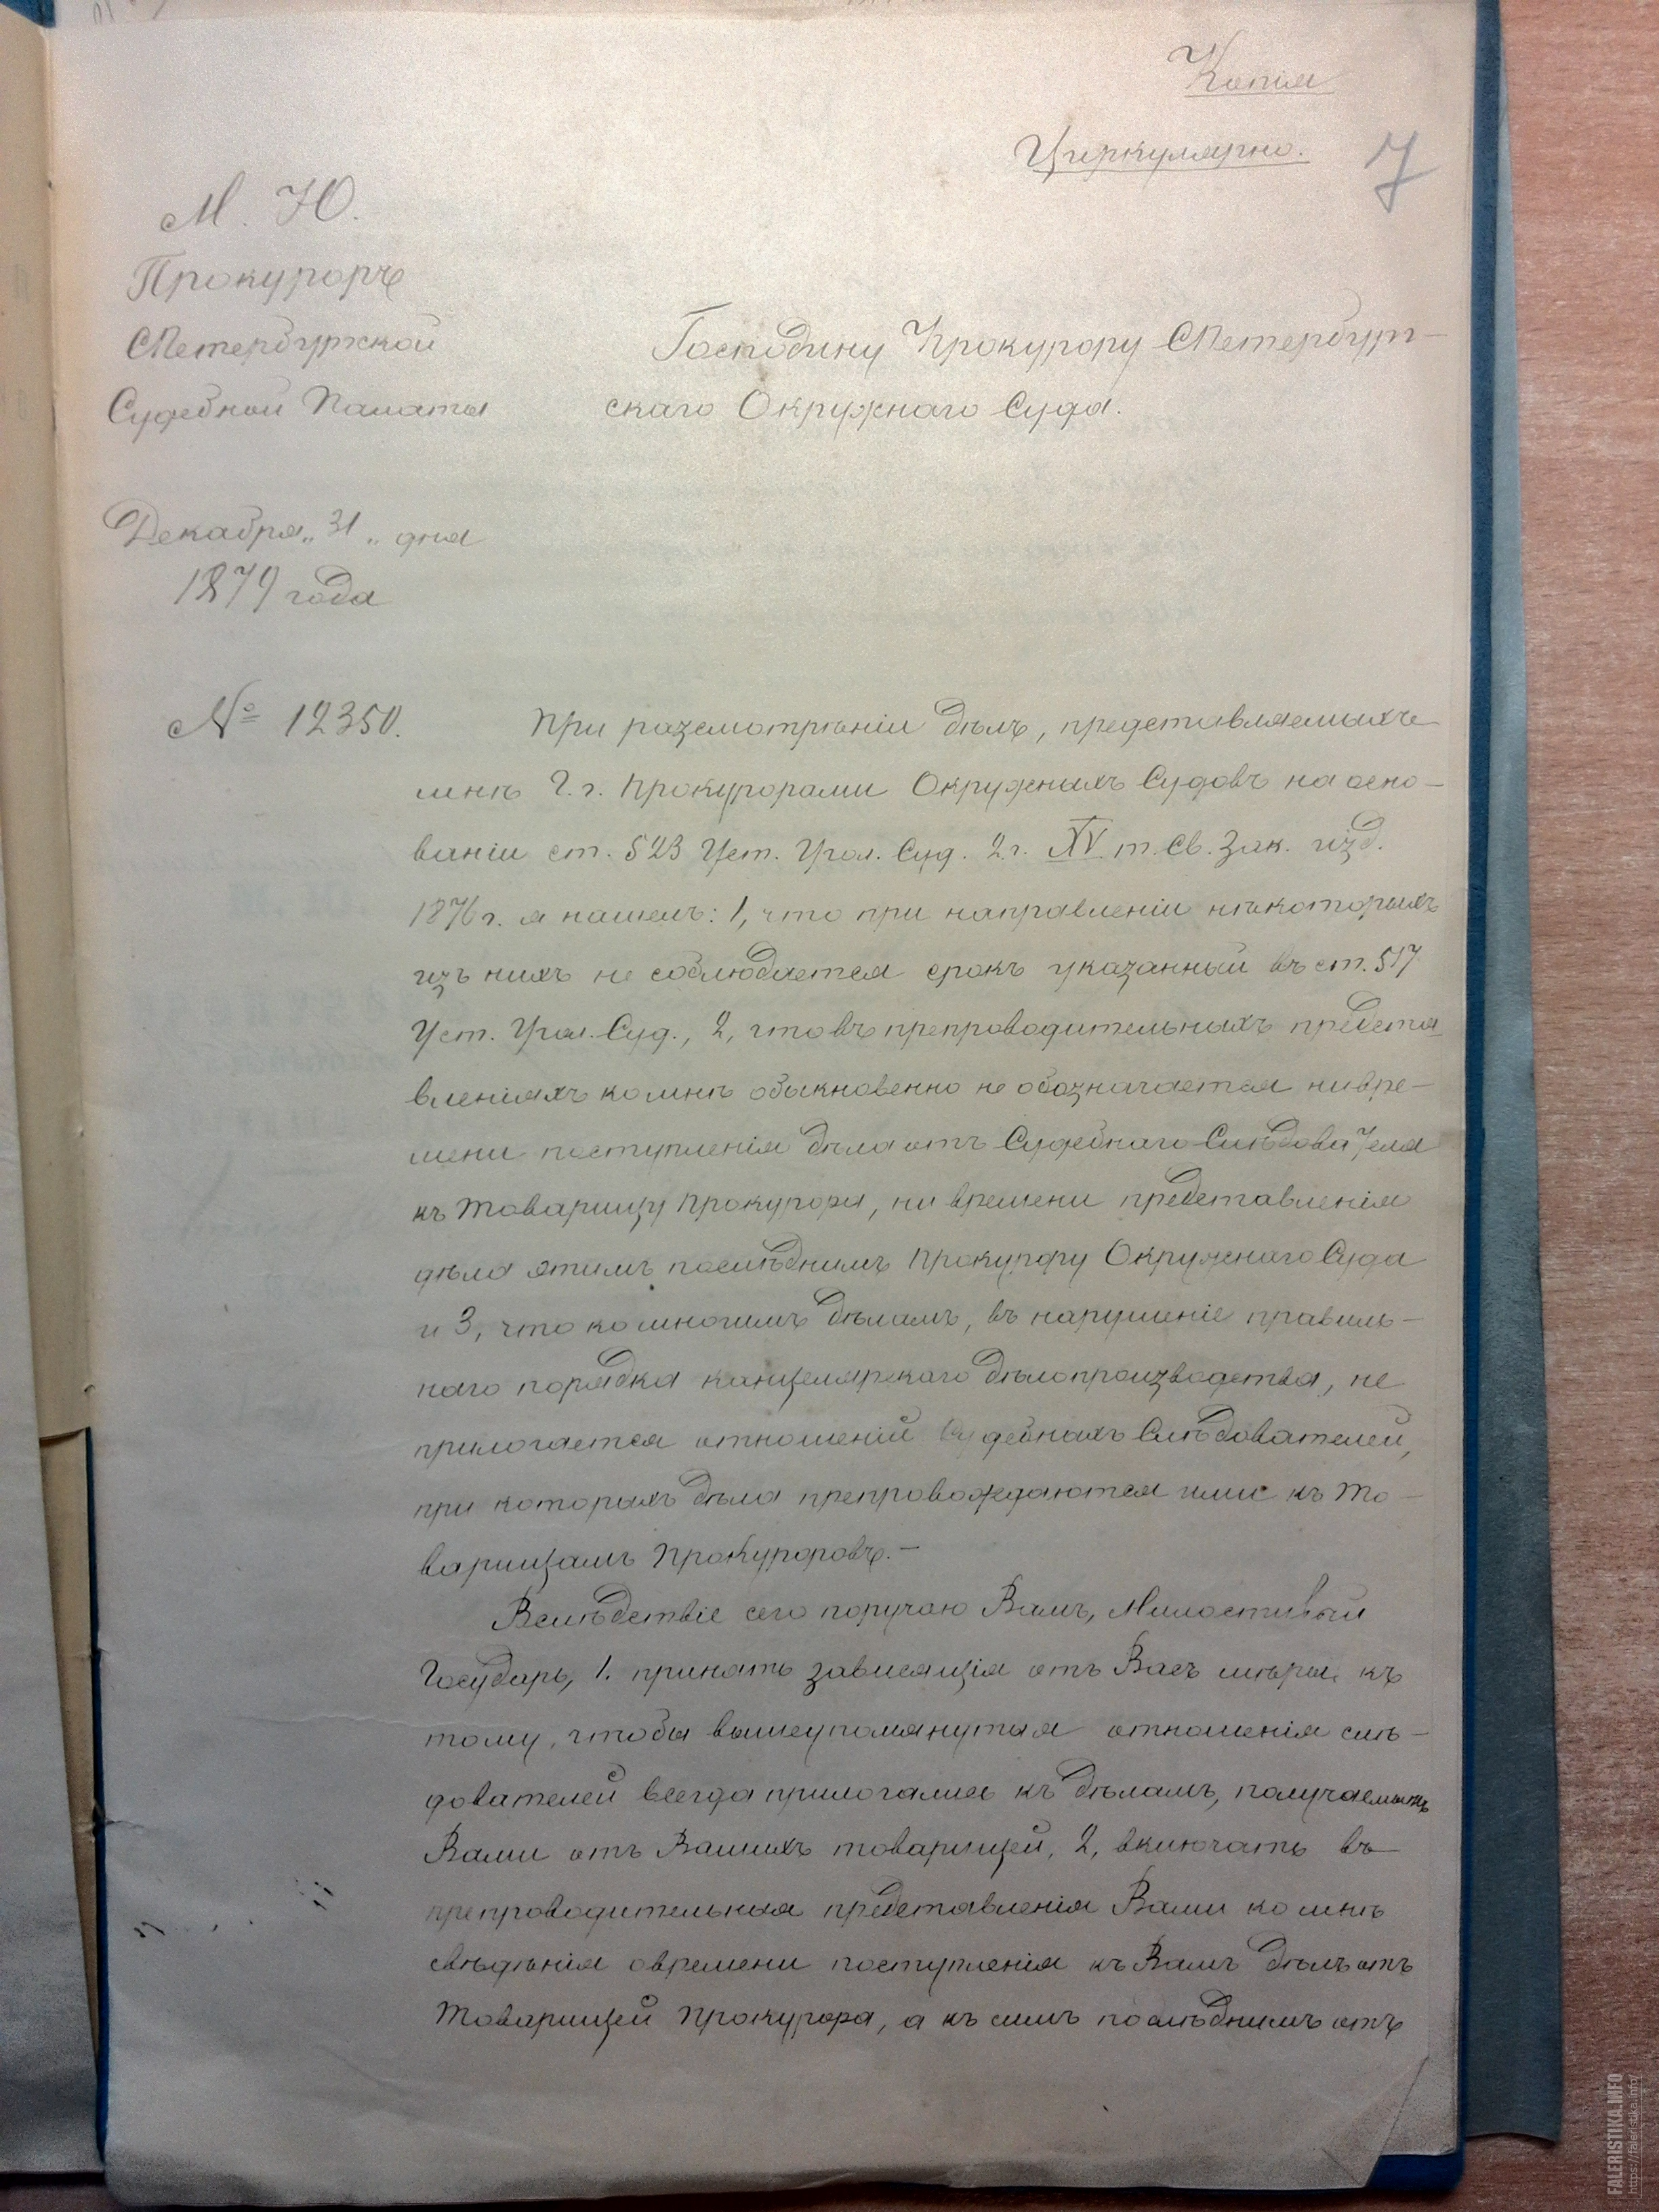 Копія
Циркулярно.
7
М. Ю.
Прокуроръ
СПетербургской
Судебной Палаты
Господину Прокурору СПетербург-
скаго Окружнаго Суда.
Декабря „31„ дня
1879 года
№ 12350.
При разсмотрѣніи дѣлъ, представляемыхъ
мнѣ Г.г. Прокурорами Окружныхъ Судовъ на осно-
ваніи ст. 523 Уст. Угол. Суд. 2 г. XV т. Св. Зак. изд.
1876 г. я нашелъ: 1, что при направленіи нѣкоторыхъ
изъ нихъ не соблюдается срокъ указанный въ ст. 517
Уст. Угол. Суд., 2, что въ препроводительныхъ предста
вленіяхъ ко мнѣ обыкновенно не обозначается ни вре-
мени поступленія дѣла отъ Судебнаго Слѣдователя
къ Товарищу Прокурора, ни времени представленія
дѣла этимъ послѣднимъ Прокурору Окружнаго Суда
и 3, что ко многимъ дѣламъ, въ нарушеніе правиль-
наго порядка канцелярскаго дѣлопроизводства, не
прилогается отношеній Судебныхъ Слѣдователей,
при которыхъ дѣла препровождаются ими къ То-
варищамъ Прокуроровъ.-
Вслѣдствіе сего поручаю Вамъ, Милостивый
Государь, 1. принять зависящія отъ Васъ мѣры къ
тому, чтобы вышеупомянутыя отношенія слѣ-
дователей всегда прилогались къ дѣламъ, получаемымъ
Вами отъ Вашихъ товарищей, 2, включать въ
препроводительныя представленія Вами ко мнѣ
свѣдѣнія о времени поступленія къ Вамъ дѣлъ отъ
Товарищей Прокурора, а къ симъ послѣднимъ отъ
FALERISTIKA.INFO
https://faleristika.info/